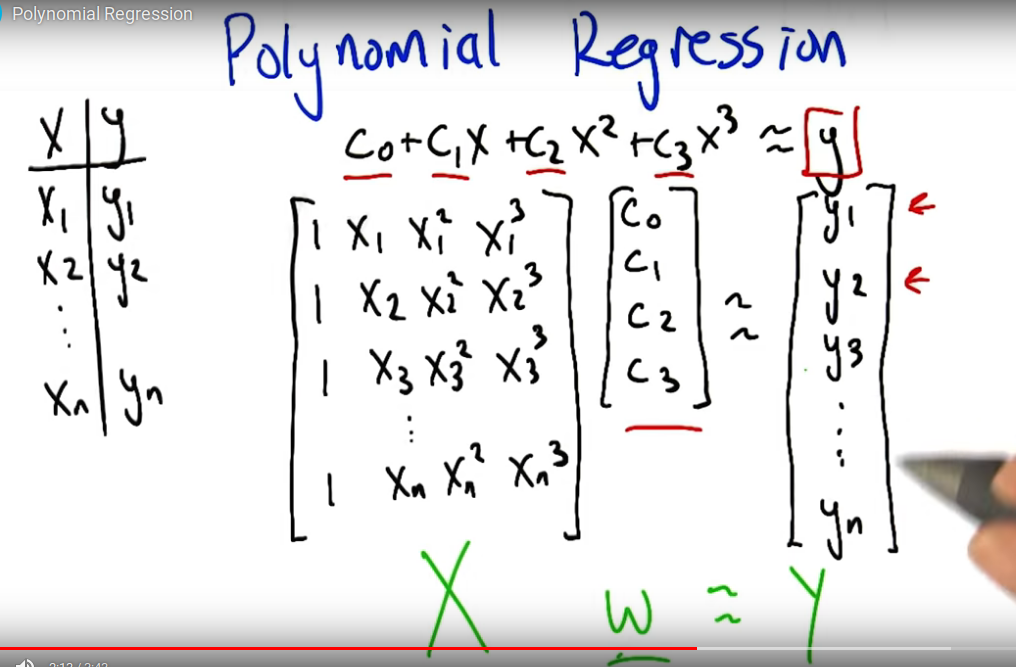 Polynomial Regression
Polynomial Regression
x y
x₁ y₁
x₂ y₂
⋮
xₙ yₙ
c₀+c₁x+c₂x²+c₃x³ ≈ y
1 x₁ x₁² x₁³
1 x₂ x₂² x₂³
1 x₃ x₃² x₃³
⋮
1 xₙ xₙ² xₙ³
c₀
c₁
c₂
c₃
≈
y₁ ←
y₂ ←
y₃
⋮
yₙ
X w ≈ Y